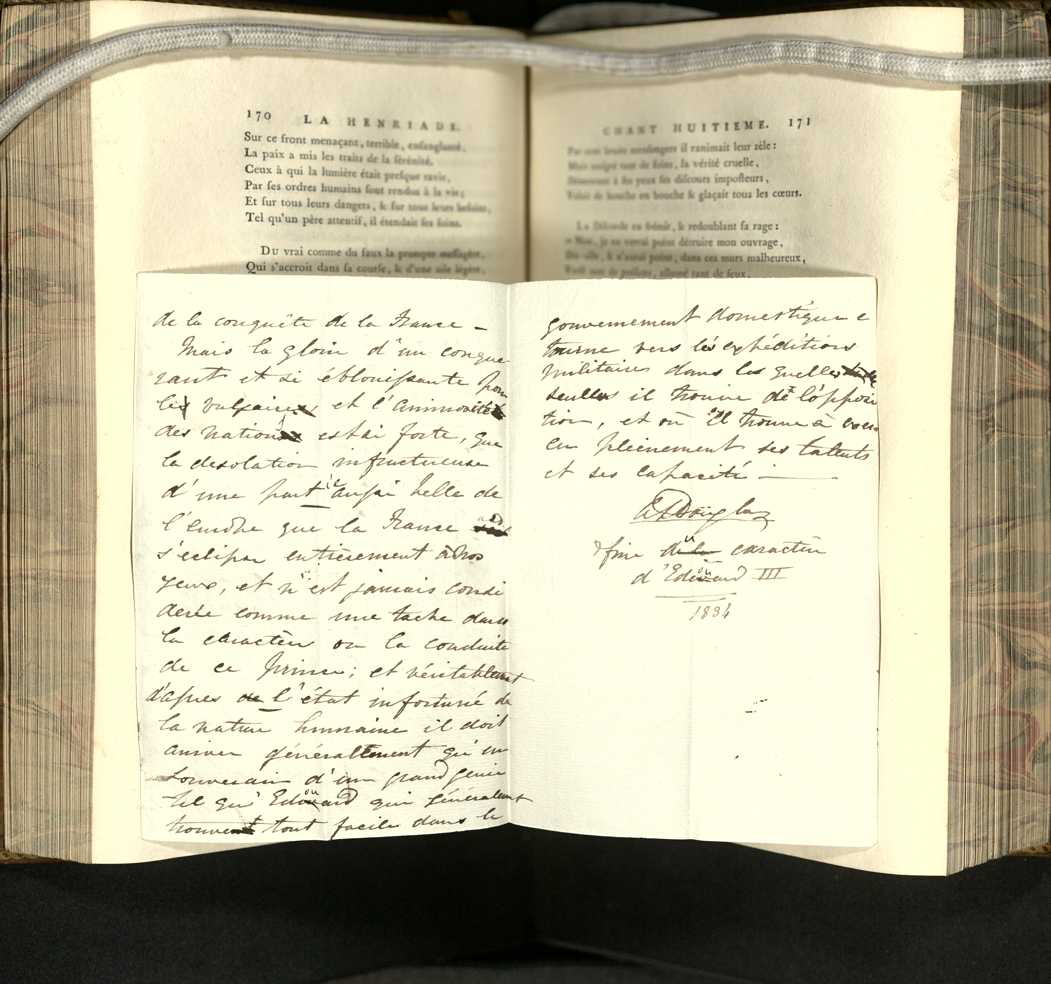 170 LA HENRIADE.
Sur ce front menaçant, terrible, ensanglanté,
La paix a mis les traits de la sérénité.
Ceux à qui la lumière était presque ravie,
Par ses ordres humains sont rendus à la vie;
Et sur tous leurs dangers, & sur tous leurs besoins,
Tel qu'un père attentif, il étendait ses soins.
Du vrai comme du faux la prompte messagère,
Qui s'accroit dans sa course, & d'une aile légère,
de la conquête de la France –
Mais la gloire d'un conqué
rant et si éblouissante pour
les vulgaires, et l'animosité
des nations est si forte, que
la desolation infructueuse
d'une part aussi belle de
l'Europe que la France
s'eclipse entièrement à nos
yeux, et n'est jamais consi
derée comme une tache dans
la caractère ou la conduite
de ce Prince; et véritablement
d'après l'état infortuné de
la nature humaine il doit
arriver généralement qu'un
Souverain d'un grand genie
tel qu'Edouard qui généralement
trouve tout facile dans le
CHANT HUITIEME. 171
il ranimait leur zèle:
Mais malgré tant de soins, la vérité cruelle,
Démentant à ses yeux ses discours imposteurs,
Volait de bouche en bouche & glaçait tous les cœurs.
La Discorde en frémit, & redoublant sa rage:
je ne verrai point détruire mon ouvrage,
& n'aurai point, dans ces murs malheureux,
tant de poisons, allumé tant de feux,
gouvernement domestique
tourne vers les expéditions
Militaires dans les quelles
seulles il trouve de l'opposi
tion, et où il trouve à exer
cer pleinement ses talents
et ses capacité –
Douglas
fine du caractère
d'Edouard III
1834